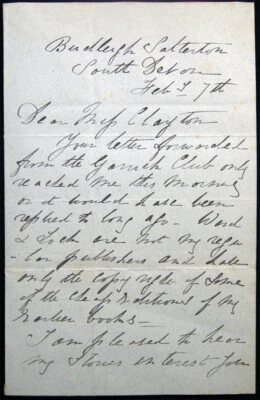 Budleigh Salterton
South Devon
Feby 7th
Dear Miss Clayton
Your letter forwarded
from the Garrick Club only
reached me this morning
or it would have been
replied to long ago - Ward
& Lock are not my regu
- lar publishers and
only the copy right of some
of the cheap editions of my
Earlier books -
I am pleased to hear
my stories interest you